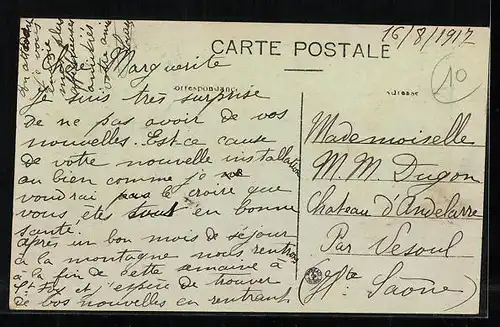 16/8/1917
CARTE POSTALE
Correspondance
Adresse
10
Marguerite
Je suis très surprise
de ne pas avoir de vos
nouvelles. Est-ce cause
de votre nouvelle installation
ou bien comme je
voudrai le croire que
vous êtes tous en bonne
santé.
après un bon mois de séjour
à la montagne nous rentrons
à la fin de cette semaine à
St Foy et j'espère de trouver
de vos nouvelles en rentrant
En attendant
je vous
envoie les
affectueuses
amitiés
votre amie
Mademoiselle
M. M. Dugon
Chateau d'Andelarre
Par Vesoul
Hte
Saône)